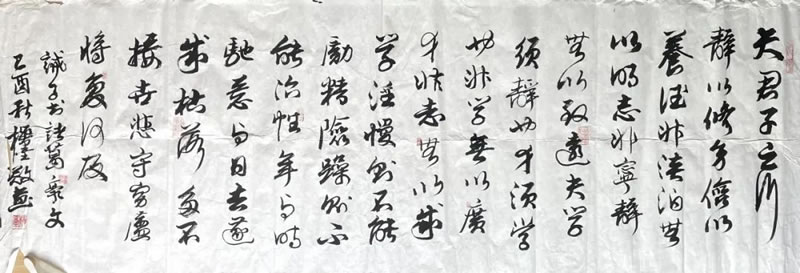 夫君子之行
靜以修身儉以
養德非淡泊無
以明志非寧靜
無以致遠夫学
須靜也才須学
也非学無以廣
才非志無以成
学淫慢則不能
勵精險躁則不
能治性年与時
馳意与日去遂
成枯落多不
接世悲守穷廬
將復何及
誡子书諸葛亮文
乙酉秋